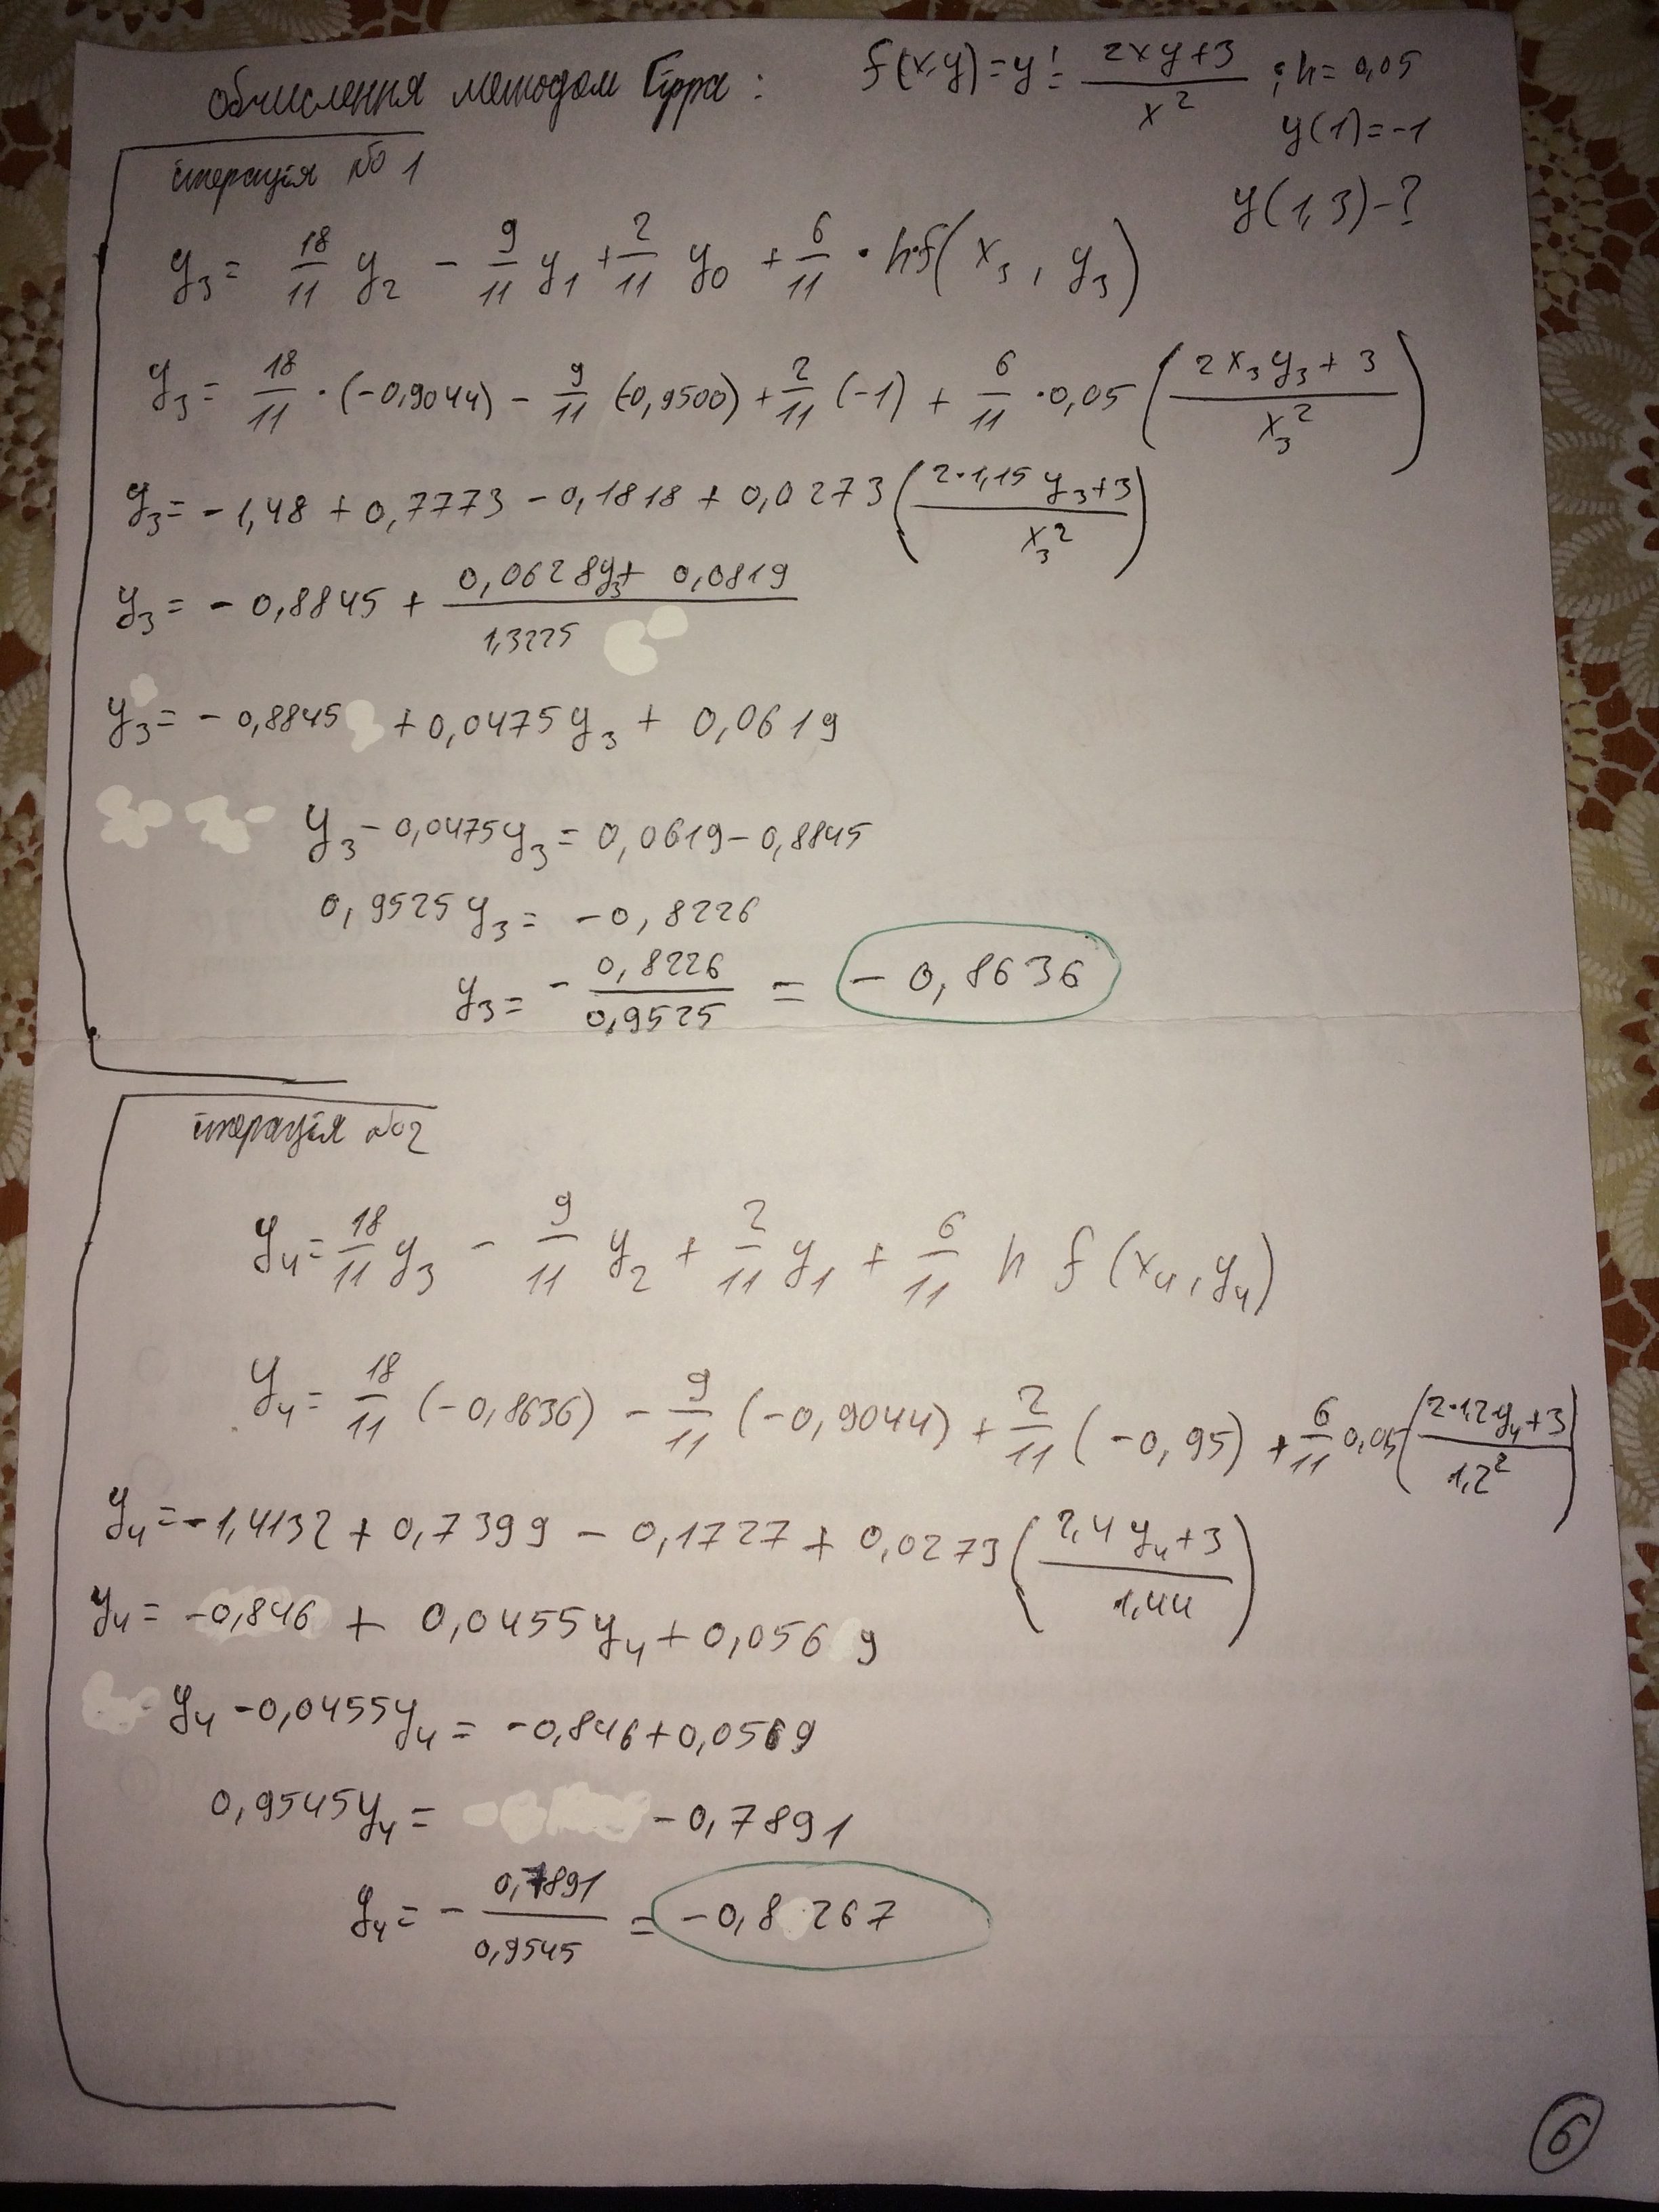 обчислення методом Гіра : f(x,y)=y'= (2xy+3)/x² ; h=0,05
y(1)=-1
ітерація №1
y(1,3)-?
y₃= 18/11 y₂ - 9/11 y₁ + 2/11 y₀ + 6/11 · h·f(x₃, y₃)
y₃= 18/11 ·(-0,9044) - 9/11 (-0,9500) + 2/11 (-1) + 6/11 ·0,05 ((2x₃y₃+3)/x₃²)
y₃= -1,48 + 0,7773 - 0,1818 + 0,0273 ((2·1,15 y₃+3)/x₃²)
y₃= -0,8845 + (0,0628y₃+ 0,0819)/1,3225
y₃= -0,8845 + 0,0475y₃ + 0,0619
y₃ - 0,0475y₃ = 0,0619 - 0,8845
0,9525y₃ = -0,8226
y₃= - 0,8226/0,9525 = -0,8636
ітерація №2
y₄= 18/11 y₃ - 9/11 y₂ + 2/11 y₁ + 6/11 h f(x₄, y₄)
y₄= 18/11 (-0,8636) - 9/11 (-0,9044) + 2/11 (-0,95) + 6/11 0,05 ((2·1,2·y₄+3)/1,2²)
y₄= -1,4132 + 0,7399 - 0,1727 + 0,0273 ((2,4y₄+3)/1,44)
y₄= -0,846 + 0,0455y₄ + 0,0569
y₄ - 0,0455y₄ = -0,846+0,0569
0,9545y₄ = -0,7891
y₄= - 0,7891/0,9545 = -0,8267
6